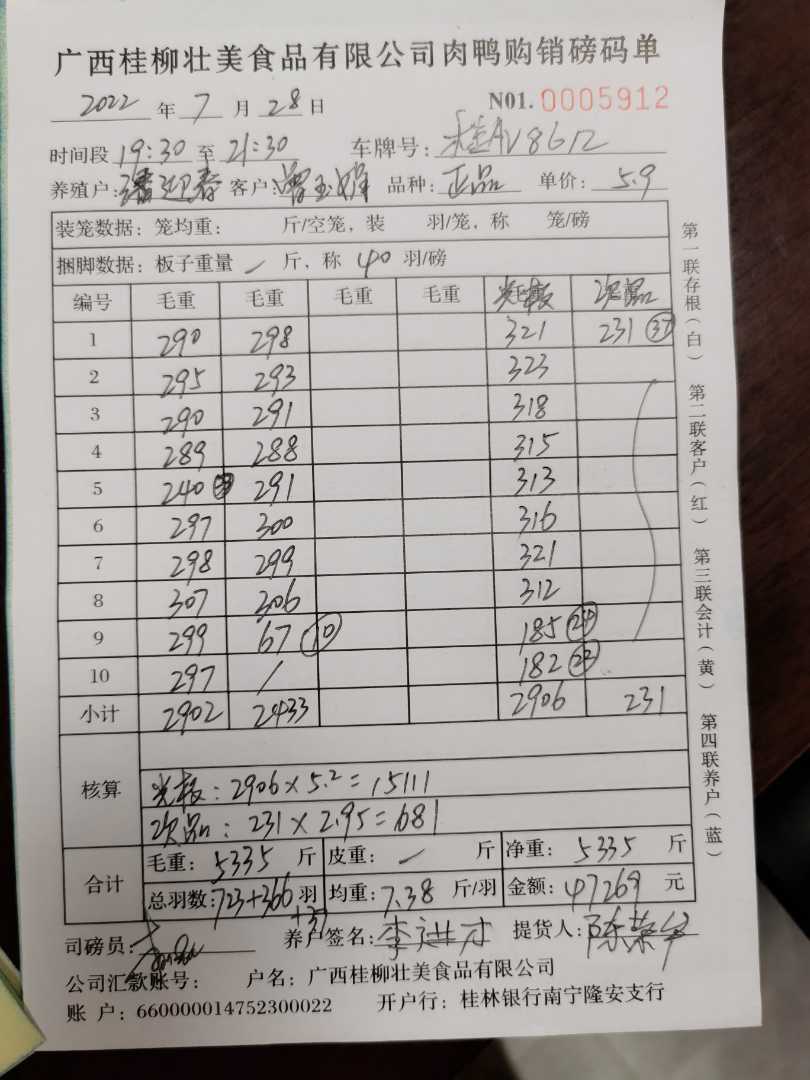 广西桂柳壮美食品有限公司肉鸭购销磅码单
2022 年 7 月 28 日 N01. 0005912
时间段 19:30 至 21:30 车牌号: 桂AV8612
养殖户: 潘迎春 客户: 曾玉娟 品种: 正品 单价: 5.9
装笼数据: 笼均重: 斤/空笼, 装 羽/笼, 称 笼/磅
捆脚数据: 板子重量 / 斤, 称 40 羽/磅
编号 毛重 毛重 毛重 毛重 光板 次品
1 290 298 321 231 37
2 295 293 323
3 290 291 318
4 289 288 315
5 240 291 313
6 297 300 316
7 298 299 321
8 307 306 312
9 299 67 10 185
10 297 / 182
小计 2902 2433 2906 231
核算
光板: 2906 × 5.2 = 15111
次品: 231 × 2.95 = 681
合计
毛重: 5335 斤 皮重: / 斤 净重: 5335 斤
总羽数: 723+366 羽 均重: 7.38 斤/羽 金额: 47269 元
+37
司磅员: 养户签名: 李进才 提货人:
公司汇款账号: 户名: 广西桂柳壮美食品有限公司
账 户: 660000014752300022 开户行: 桂林银行南宁隆安支行
第一联存根(白) 第二联客户(红) 第三联会计(黄) 第四联养户(蓝)